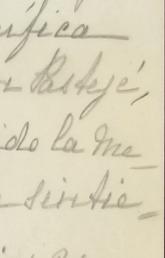 ífica
n Pastejé,
ido la me-
sintie-